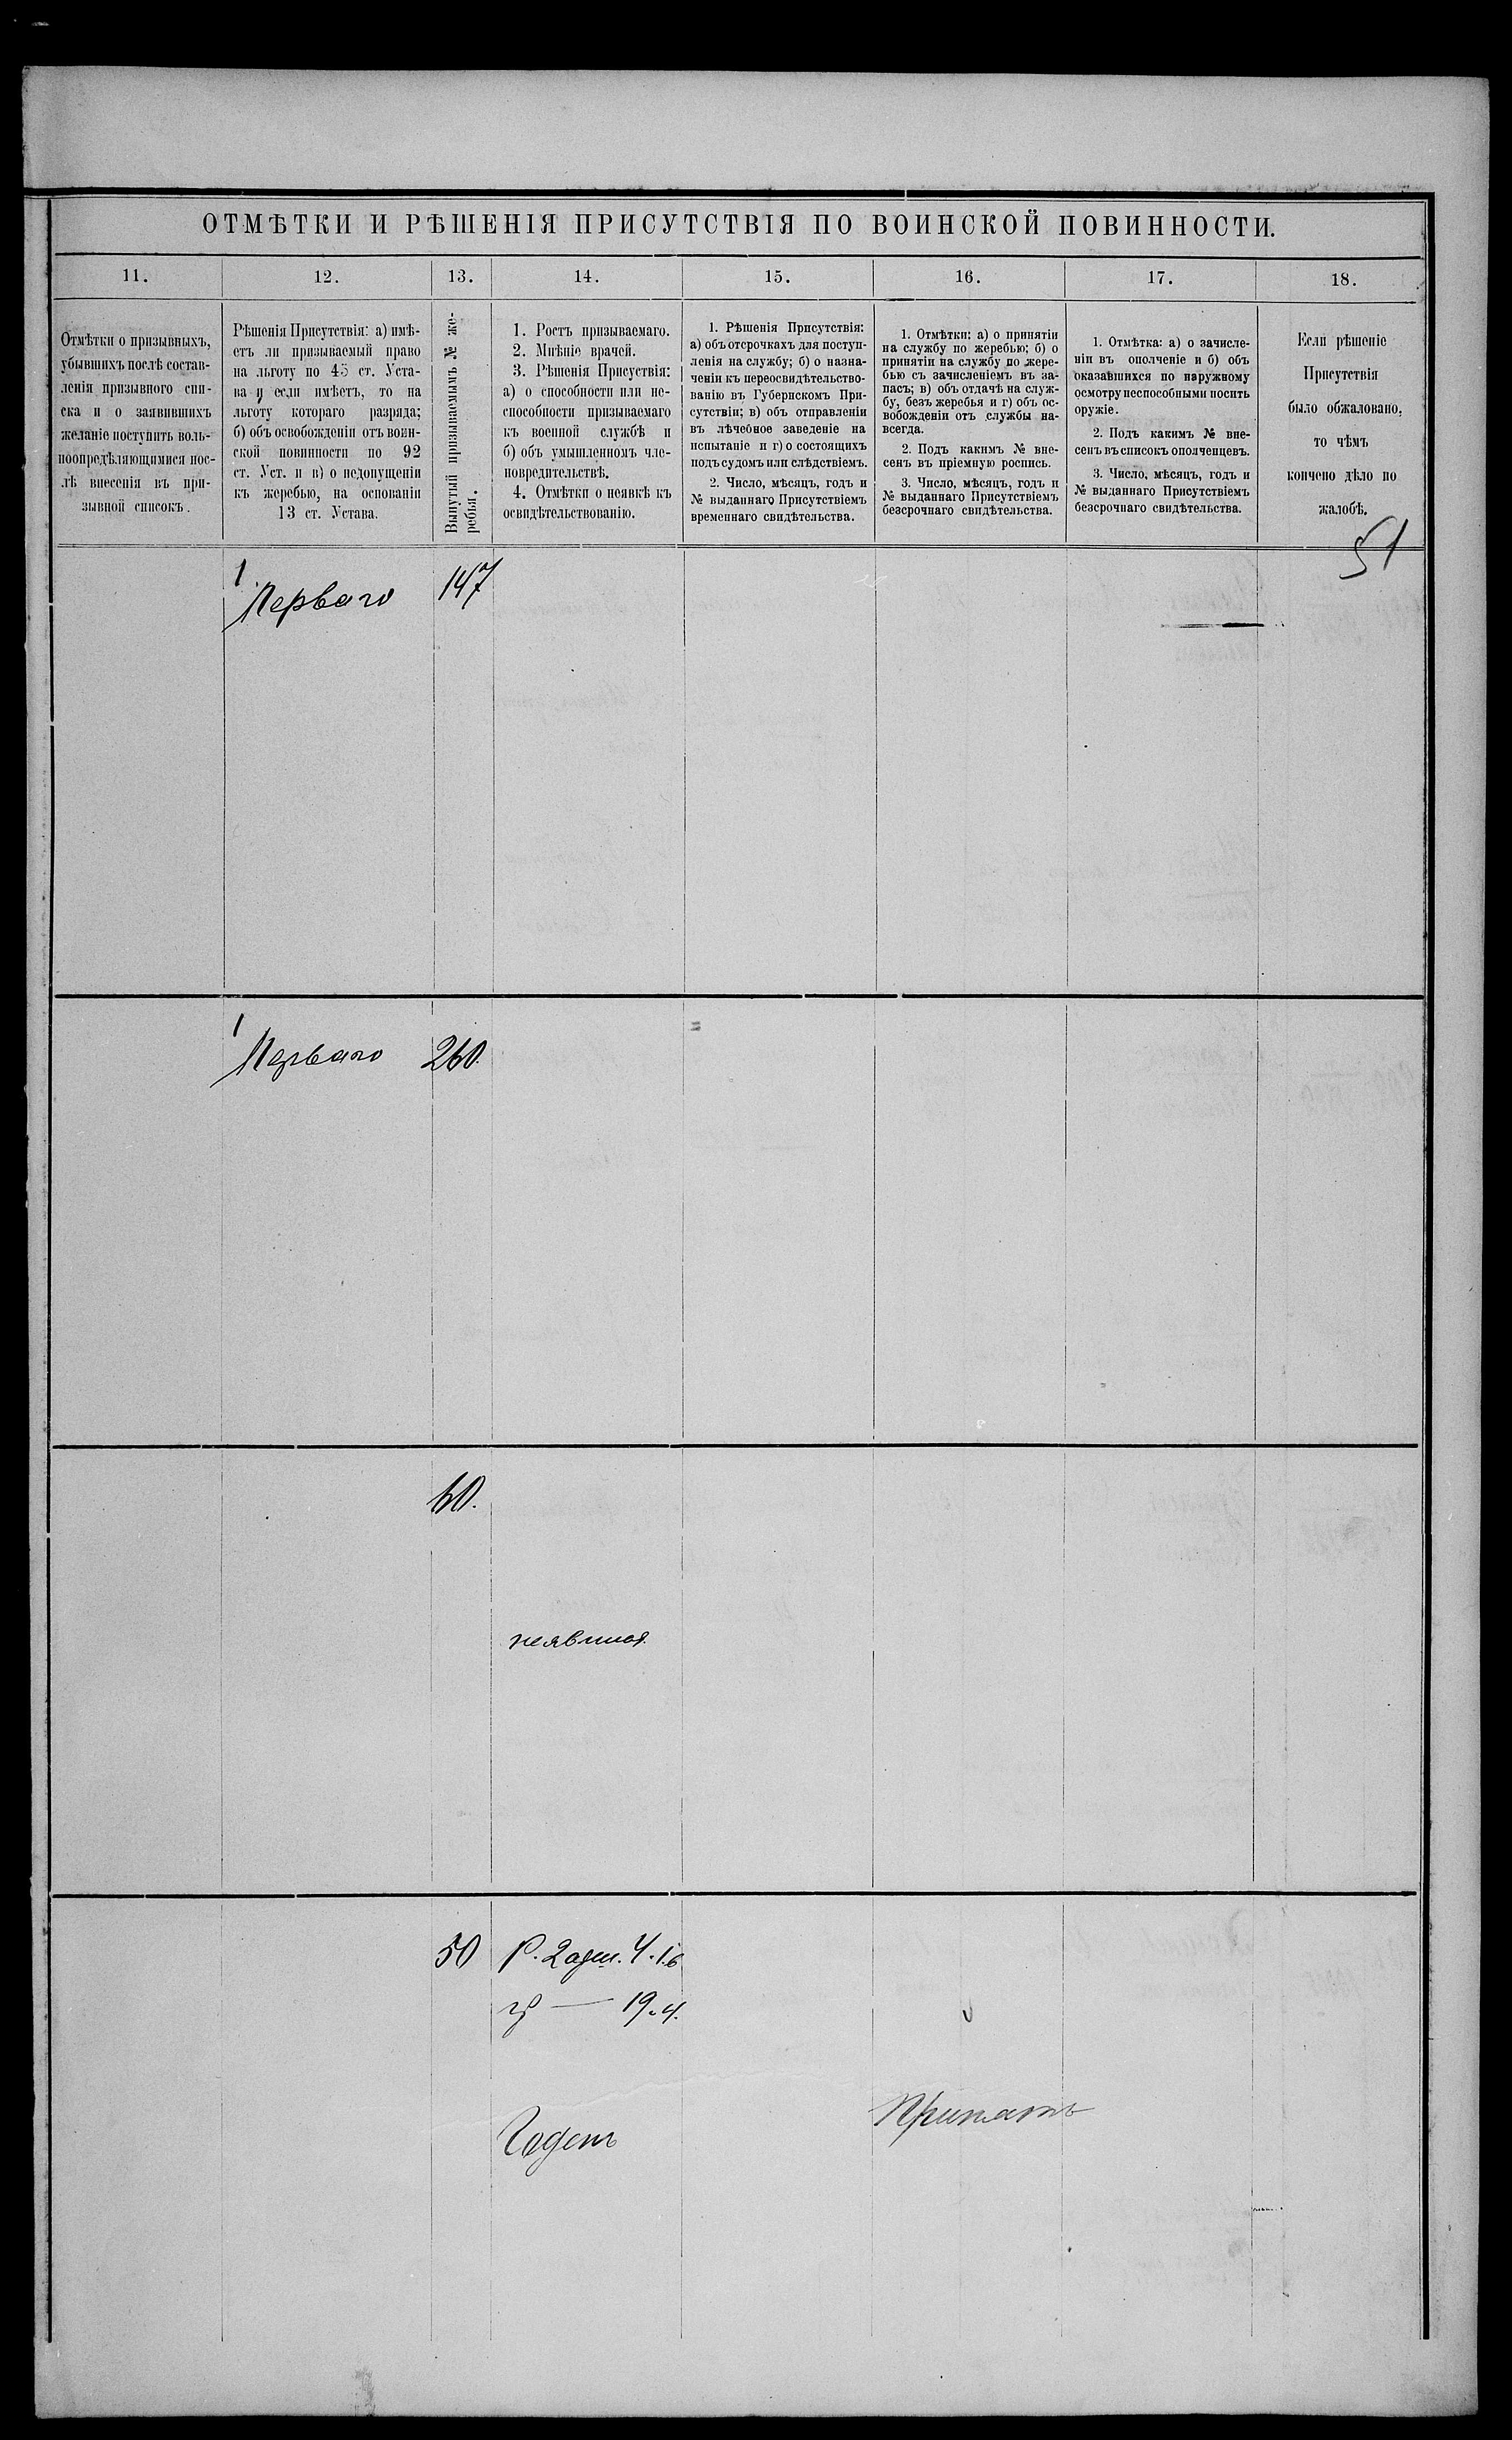 ОТМѢТКИ И РѢШЕНІЯ ПРИСУТСТВІЯ ПО ВОИНСКОЙ ПОВИННОСТИ.
11.
Отмѣтки о призывныхъ,
убывшихъ послѣ состав-
ленія призывного спи-
ска и о заявившихъ
желаніе поступить воль-
ноопредѣляющимися пос-
лѣ внесенія въ при-
зывной списокъ.
12.
Рѣшенія Присутствія: а) имѣ-
етъ ли призываемый право
на льготу по 45 ст. Уста-
ва и если имѣетъ, то на
льготу котораго разряда;
б) объ освобожденіи отъ воин-
ской повинности по 92
ст. Уст. и в) о недопущеніи
къ жеребью, на основаніи
13 ст. Устава.
13.
Вынутый призываемымъ № же-
ребья.
14.
1. Ростъ призываемаго.
2. Мнѣніе врачей.
3. Рѣшенія Присуствія:
а) о способности или не-
способности призываемаго
къ военной службѣ и
б) объ умышленномъ чле-
новредительствѣ.
4. Отмѣтки о неявкѣ къ
освидѣтельствованію.
15.
1. Рѣшенія Присутствія:
а) объ отсрочкахъ для поступ-
ленія на службу; б) о назна-
ченіи къ переосвидѣтельство-
ванію въ Губернскомъ При-
сутствіи; в) объ отправленіи
въ лѣчебное заведеніе на
испытаніе и г) о состоящихъ
подъ судомъ или слѣдствіемъ.
2. Число, мѣсяцъ, годъ и
№ выданнаго Присутствіемъ
временнаго свидѣтельства.
16.
1. Отмѣтки: а) о принятіи
на службу по жеребью; б) о
принятіи на службу по жере-
бью съ зачисленіемъ въ за-
пасъ; в) объ отдачѣ на служ-
бу, безъ жеребья и г) объ ос-
вобожденіи отъ службы на-
всегда.
2. Подъ какимъ № вне-
сенъ въ пріемную роспись.
3. Число, мѣсяцъ, годъ и
№ выданнаго Присутствіемъ
безсрочнаго свидѣтельства.
17.
1. Отмѣтка: а) о зачисле-
ніи въ ополченіе и б) объ
оказавшихся по наружному
осмотру неспособными носить
оружіе.
2. Подъ какимъ № вне-
сенъ въ списокъ ополченцевъ.
3. Число, мѣсяцъ, годъ и
№ выданнаго Присутствіемъ
безсрочнаго свидѣтельства.
18.
Если рѣшеніе
Присутствія
было обжаловано,
то чѣмъ
кончено дѣло по
жалобѣ.
51
1
Перваго 147
1
Перваго 260.
60.
неявился
50 Р. 2 арш. 4. 1. в
гр — 19. ч.
Годенъ
Принятъ